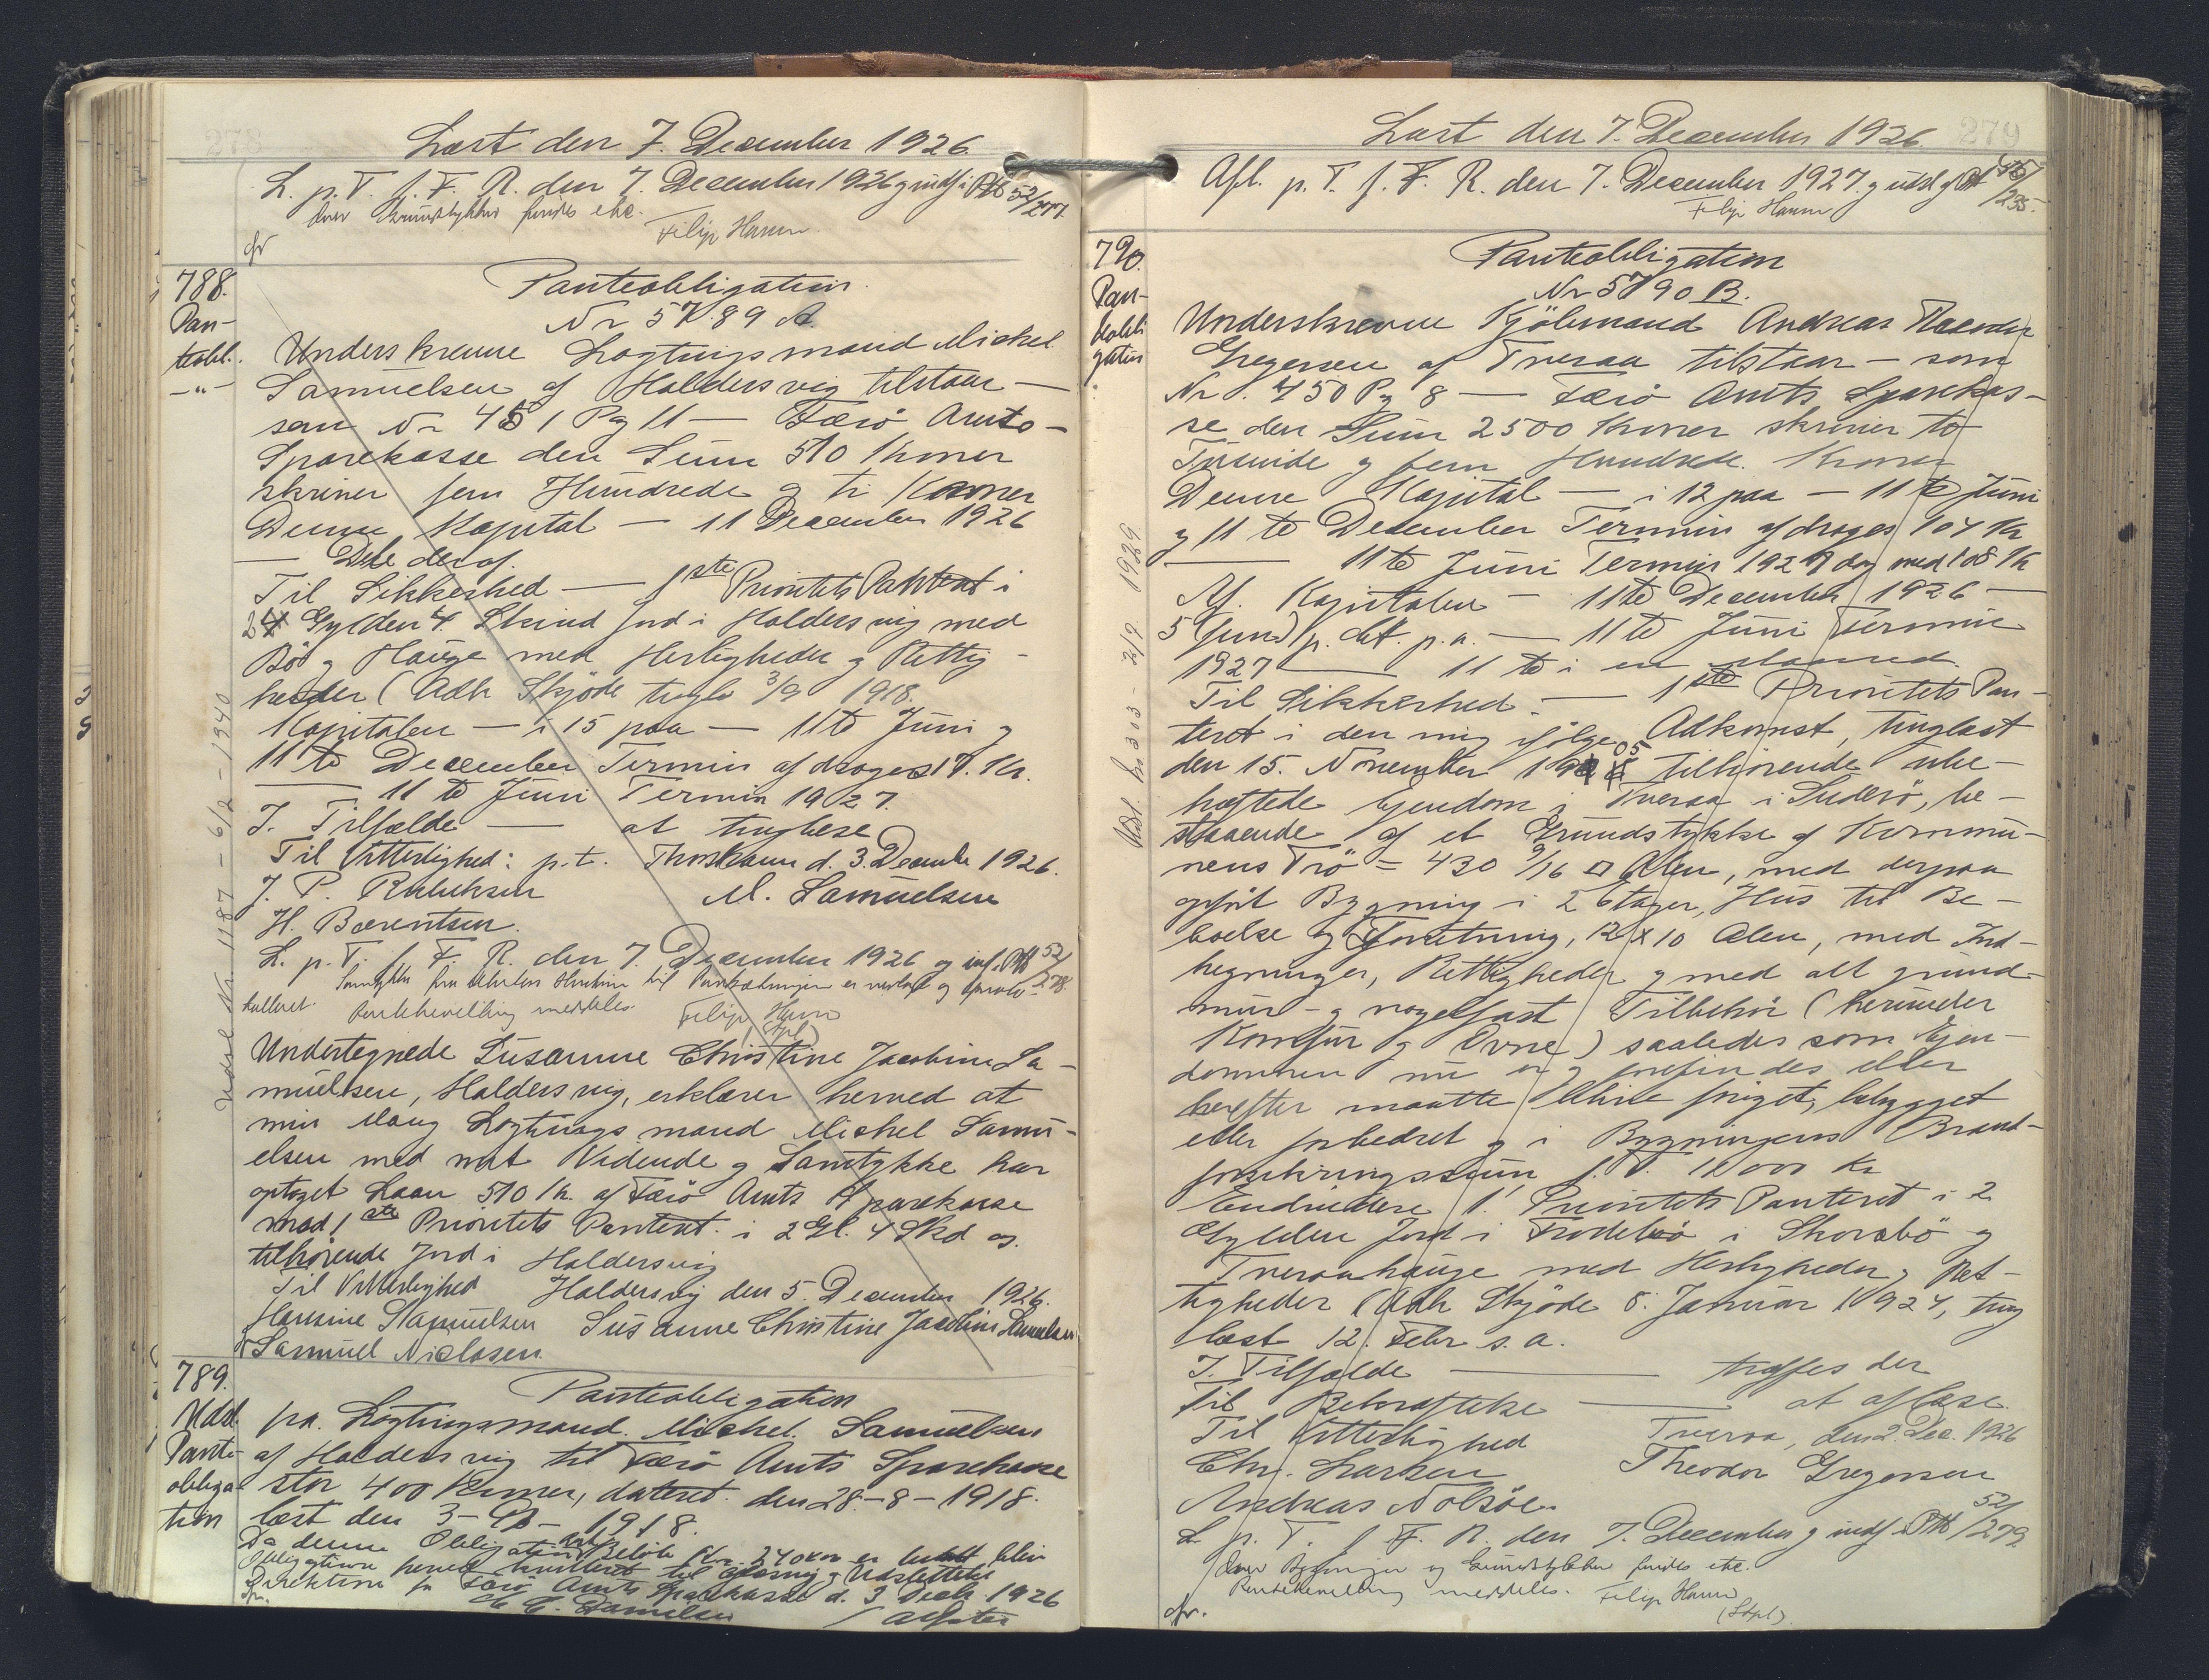 278
Læst den 7. December 1926
L. p. T. f. F. R. den 7. December 1926 g indf i Ptb 52/277.
Over Grundstykket findes ehc.
Filip Hansen
788.
Pan-
teobl.
-"-
Panteobligation.
Nr 5789 A.
Underskrevne Lagtingsmand Michel
Samuelsen af Haldersvig tilstaar —
som Nr 451 Pg 11 — Færö Amts —
Sparekasse den Sum 510 Kroner
skriver fem Hundrede g ti Kroner
Denne Kapital — 11 December 1926
— Dele deraf.
Til Sikkerhed — 1ste Prioritets Panteret i
2 Gylden 4 Skind Jord i Haldersvig med
Bö g Hauge med Herligheder g Rettig-
heder (Adk Skjöde tingl. 3/9 1918.
Kapitalen — i 15 paa — 11te Juni g
11te December Termin afdrages 17. Kr.
— 11te Juni Termin 1927.
I. Tilfælde — at tinglæse
Til Vitterlighed: p.t. Thorshavn d. 3. December 1926.
J. P.
M. Samuelsen
H. Bærentsen.
L. p. T. f. F. R. den 7. December 1926 og inf. Ptb 52/278.
Samtykke fra til Pantsætningen er
Rentebevilling meddeles
Filip Hansen
(Stpl)
Undertegnede Susanne Christine Jacobine Sa-
muelsen, Haldersvig, erklærer herved at
min Mand Lagtingsmand Michel Samu-
elsen med mit Vidende g Samtykke har
optaget Laan 510 Kr. af Færö Amts Sparekasse
mod 1ste Prioritets Panteret i 2 Gl. 4 Skd os.
tilhörende Jord i Haldersvig
Til Vitterlighed Haldersvig den 5. December 1926.
Hansine Samuelsen Susanne Christine Jacobine Samuelsen
Samuel Niclasen.
Udsl. Nr. 1187 - 6/2 - 1940
789.
Udsl.
Pante-
obliga-
tion
Panteobligation
fra Lagtingsmand Michel Samuelsen
af Haldersvig til Færö Amts Sparekasse
stor 400 Kroner, dateret den 28-8-1918.
læst den 3-9-1918.
Da denne Obligations Belöb Kr. 240 er betalt bliver
Obligationen herved kvitteret til Aflæsning g Udslettelse
Direktionen for Færö Amts Sparekasse d. 3 Decb. 1926
Danielsen
279
Læst den 7. December 1926
Afl. p. T. f. F. R. den 7. December 1927. g udsl. af Ptb /235.
Filip Hansen
790.
Pan-
teobli
gation
Panteobligation
Nr 5790 B.
Underskrevne Kjöbmand Andreas
Gregersen af Tveraa tilstaar — som
Nr. 450 Pg 8 — Færö Amts Sparekas-
se den Sum 2500 Kroner skriver to
Tusinde g fem Hundrede Kroner
Denne Kapital — i 12 paa — 11te Juni
g 11te December Termin afdrages 104 Kr
— 11te Juni Termin 1927 dog med 108 Kr
Af Kapitalen — 11te December 1926 —
5 (fem) p. Ct. p. a. — 11te Juni Termin
1927 — 11te i en
Til Sikkerhed — 1ste Prioritets Pan-
teret i den mig ifölge Adkomst, tinglæst
den 15. November 1905 tilhörende ube-
hæftede Ejendom i Tveraa i Suderö, be-
staaende af et Grundstykke af Kommu-
nens Trö = 430 9/16 □ Alen, med derpaa
opfört Bygning i 2 Etager, Hus til Be-
boelse g Forretning, 12 x 10 Alen, med Ind-
hegninger, Rettigheder g med alt grund-
mur- g nagelfast Tilbehör (herunder
Komfur g Ovne) saaledes som Ejen-
dommen nu er g forefindes eller
herefter maatte blive foröget, bebygget
eller forbedret g i Bygningens Brand-
forsikringssum f. T. 10000 Kr
Endvidere 1. Prioritets Panteret i 2
Gylden Jord i Frodebö i Skorabö g
Tveraahauge med Herligheder g Ret-
tigheder (Adk Skjöde 8. Januar 1924, ting
læst 12. Febr s. a.
I. Tilfælde — træffes der
Til Bekræftelse — at aflæse.
Til Vitterlighed Tveraa, den 2. Dec. 1926
Chr. Larsen Theodor Gregersen
Andreas Nolsöe.
L. p. T. f. F. R. den 7. December g indf i Ptb 52/279.
Over Bygningen og Grundstykket findes ehc.
Rentebevilling meddeles.
Filip Hansen
(Stpl).
Udsl. Nr 303 - 2/7 1929.